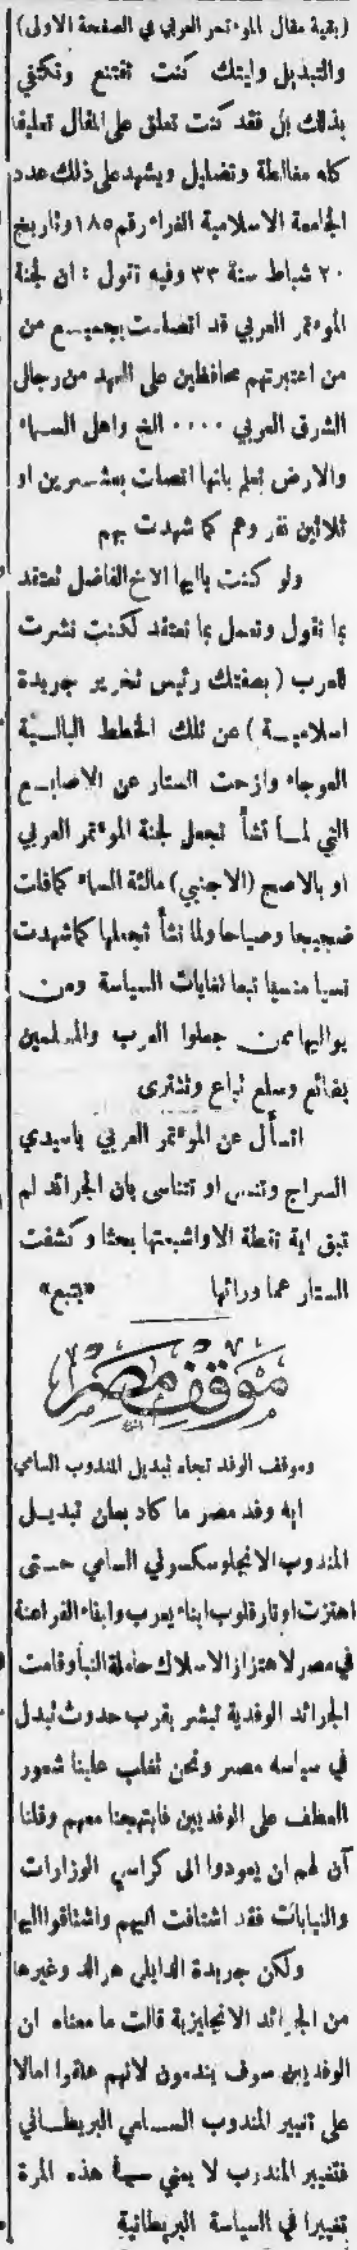 (بقية مقال المؤتمر العربي في الصفحة الاولى)
والتبديل وليتك كنت تقتنع وتكتفي
بذلك بل فقد كنت تعلق على المقال تعليقا
كله مغالطة وتضليل ويشهد على ذلك عدد
الجامعة الاسلامية الغراء رقم ١٨٥ وتاريخ
٢٠ شباط سنة ٣٣ وفيه تقول : ان لجنة
المؤتمر العربي قد اتصلت بجميع من
من اعتبرتهم محافظين على العهد من رجال
الشرق العربي .... الخ واهل السماء
والارض تعلم بانها اتصلت بعشرين او
ثلاثين نفر وهم كما شهدت بهم
ولو كنت ياايها الاخ الفاضل تعتقد
بما نقول وتعمل بما تعتقد لكنت نشرت
للعرب (بصفتك رئيس تحرير جريدة
اسلامية) عن تلك الخطط البالية
العوجاء وازحت الستار عن الاصابع
التي لما تشأ تجعل لجنة المؤتمر العربي
او بالاصح (الاجنبي) مالئة السماء كماقلت
ضجيجا وصياحا ولما تشأ تجعلها كماشهدت
نسيا منسيا تبعا لغايات السياسة ومن
يواليها ممن جعلوا العرب والمسلمين
بضائع وسلع تباع وتشترى
اتسأل عن المؤتمر العربي ياسيدي
السراج وتنسى او تتناسى بان الجرائد لم
تبق اية نقطة الا واشبعتها بحثا وكشفت
الستار عما ورائها «يتبع»
موقف مصر
وموقف الوفد تجاه تبديل المندوب السامي
ايه وفد مصر ما كاد يعلن تبديل
المندوب الانجلوسكسوني السامي حتى
اهتزت اوتار قلوب ابناء يعرب وابناء الفراعنة
في مصر لاهتزاز الاسلاك حاملة النبأ وقامت
الجرائد الوفدية تبشر بقرب حدوث تبدل
في سياسه مصر ونحن تغلب علينا شعور
العطف على الوفديين فابتهجنا معهم وقلنا
آن لهم ان يعودوا الى كراسي الوزارات
والنيابات فقد اشتاقت اليهم واشتاقوا اليها
ولكن جريدة الدايلي هرالد وغيرها
من الجرائد الانجليزية قالت ما معناه ان
الوفديين سوف يندمون لانهم علقوا امالا
على تغيير المندوب السامي البريطاني
فتغيير المندوب لا يعني في هذه المرة
تغييرا في السياسة البريطانية